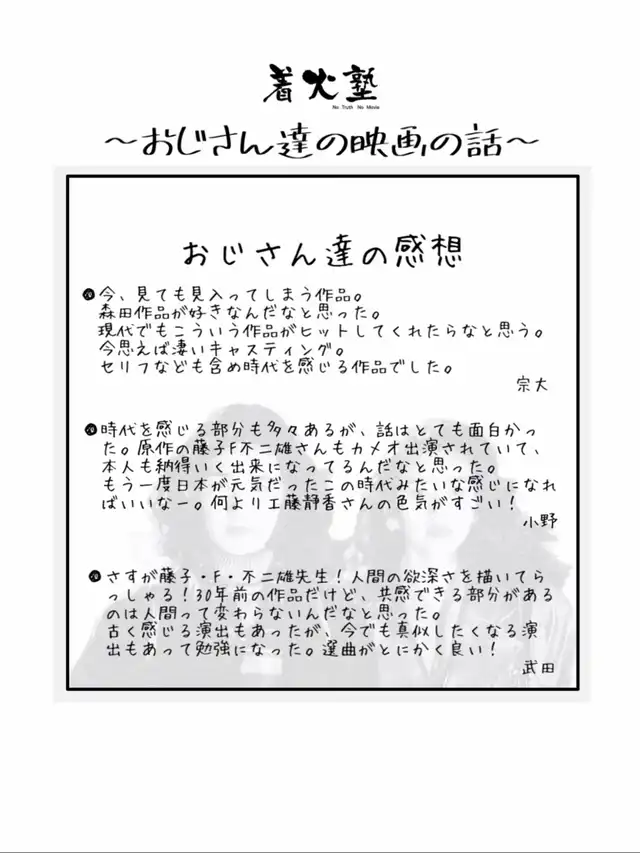 着火塾
No Truth No Movie
～おじさん達の映画の話～
おじさん達の感想
今、見ても見入ってしまう作品。
森田作品が好きなんだなと思った。
現代でもこういう作品がヒットしてくれたらなと思う。
今思えば凄いキャスティング。
セリフなども含め時代を感じる作品でした。
宗大
時代を感じる部分も多々あるが、話はとても面白かっ
た。原作の藤子F不二雄さんもカメオ出演されていて、
本人も納得いく出来になってるんだなと思った。
もう一度日本が元気だったこの時代みたいな感じになれ
ばいいなー。何より工藤静香さんの色気がすごい！
小野
さすが藤子・F・不二雄先生！人間の欲深さを描いてら
っしゃる！30年前の作品だけど、共感できる部分がある
のは人間って変わらないんだなと思った。
古く感じる演出もあったが、今でも真似したくなる演
出もあって勉強になった。選曲がとにかく良い！
武田